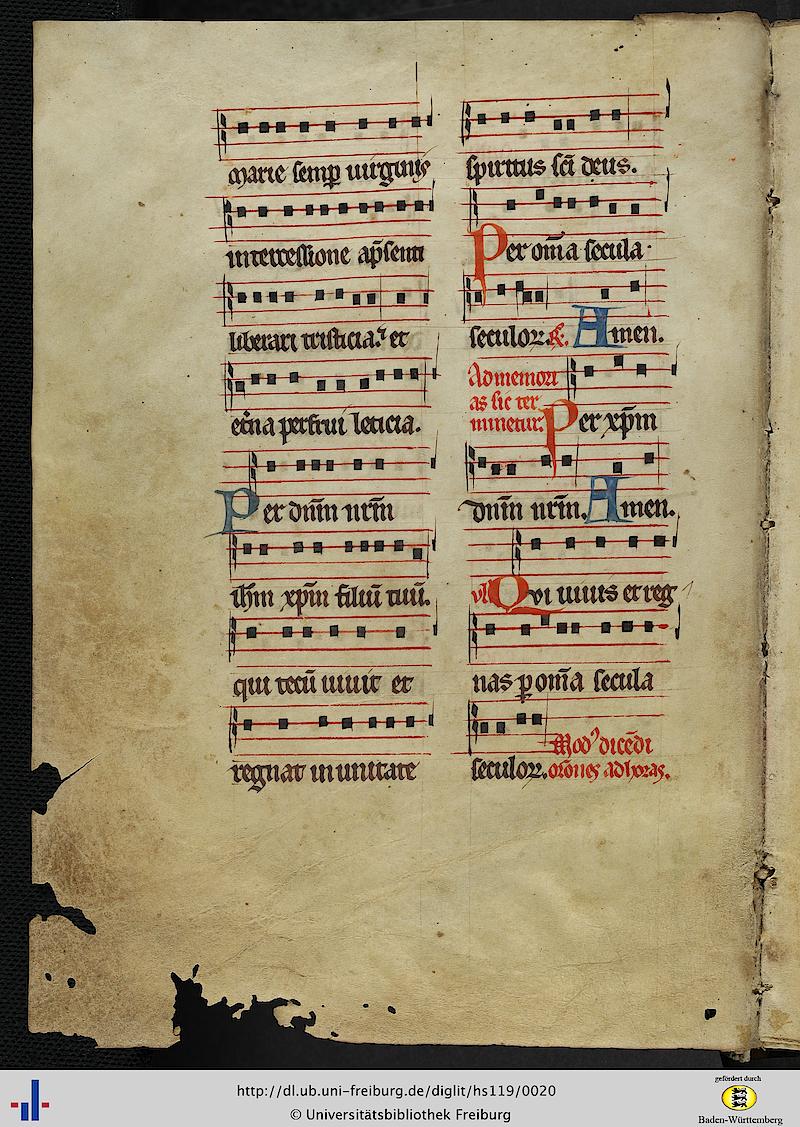 marie semꝑ uirginis
intercessione a p̄senti
liberari tristicia. ⁊ et
et̄na perfrui leticia.
Per dn̄m nr̄m
ih̄m xp̄m filiū tuū.
qui tecū uiuit et
regnat in unitate
spiritus sc̄i deus.
Per om̄a secula
seculoꝝ. ℟. Amen.
Ad memori
as sic ter
minetur. Per xp̄m
dn̄m nr̄m. Amen.
vl̄ Qui uiuis et reg
nas ꝑ om̄a secula
seculoꝝ. Mod⁹ dicēdi
or̄ones ad horas.
http://dl.ub.uni-freiburg.de/diglit/hs119/0020
© Universitätsbibliothek Freiburg
gefördert durch
Baden-Württemberg